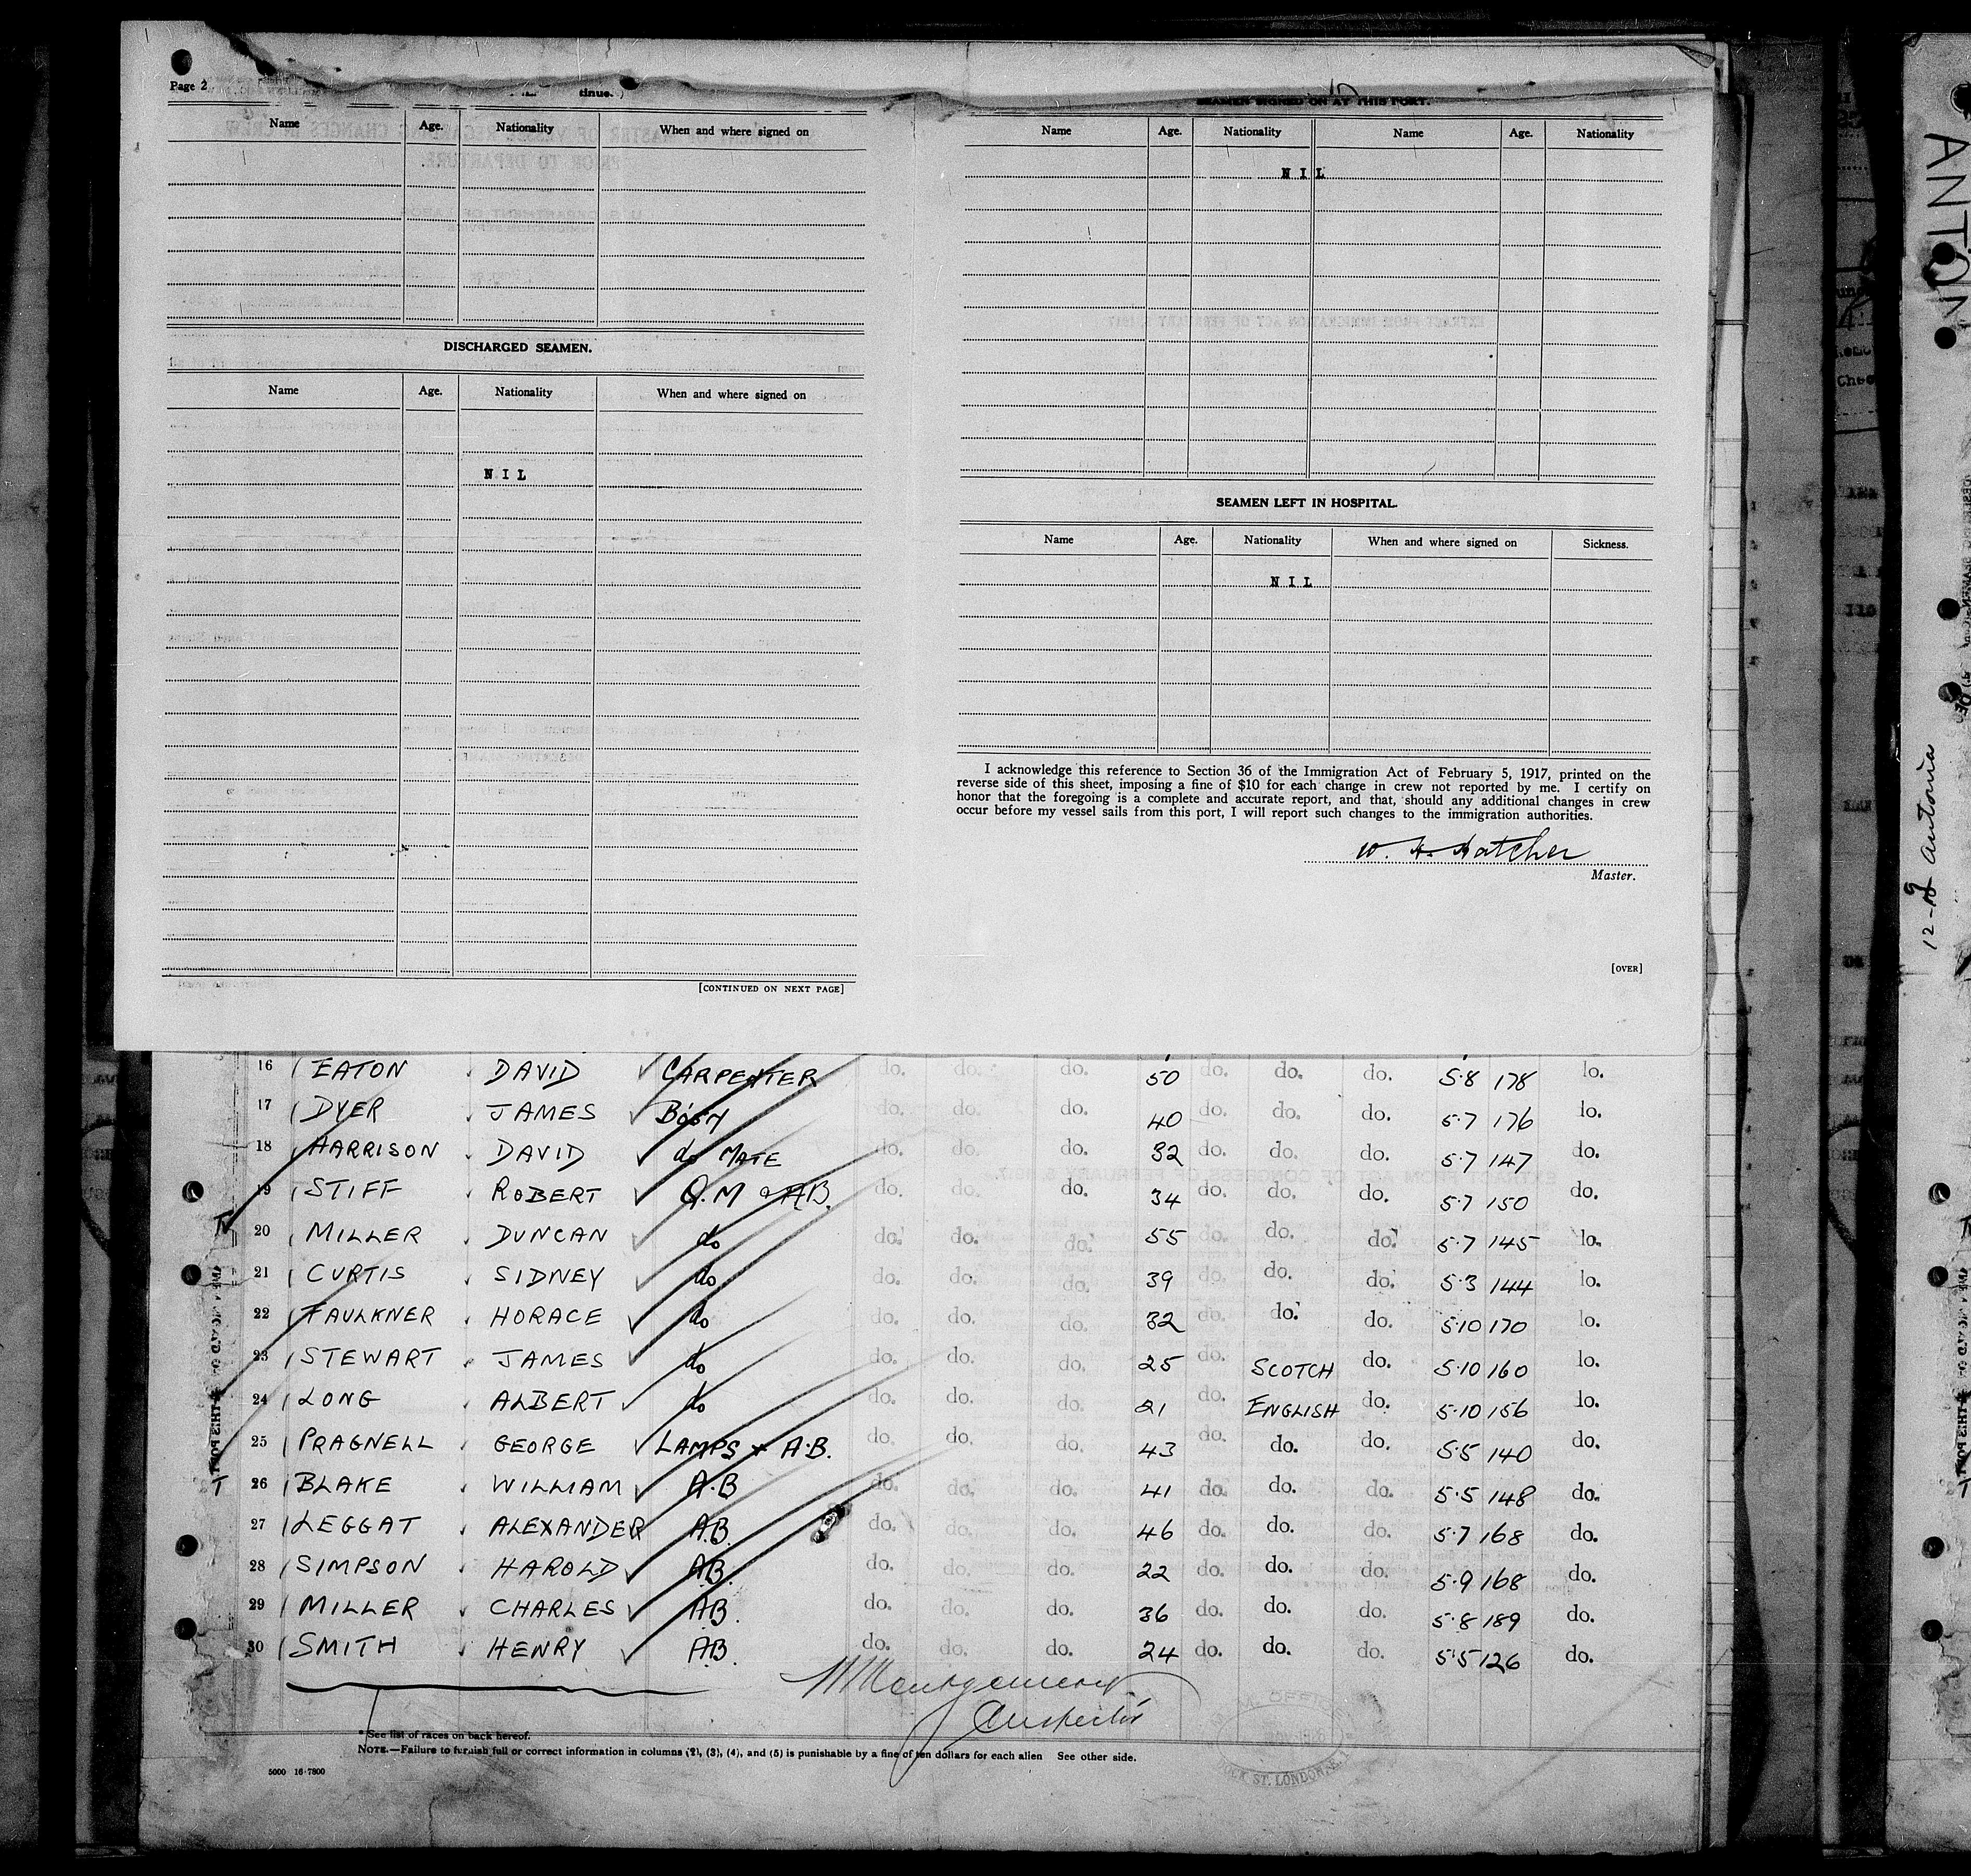 Page 2
tinue.)
Name Age. Nationality When and where signed on
DISCHARGED SEAMEN.
Name Age. Nationality When and where signed on
NIL
[CONTINUED ON NEXT PAGE]
SEAMEN SIGNED ON AT THIS PORT.
Name Age. Nationality Name Age. Nationality
NIL
SEAMEN LEFT IN HOSPITAL.
Name Age. Nationality When and where signed on Sickness.
NIL
I acknowledge this reference to Section 36 of the Immigration Act of February 5, 1917, printed on the
reverse side of this sheet, imposing a fine of $10 for each change in crew not reported by me. I certify on
honor that the foregoing is a complete and accurate report, and that, should any additional changes in crew
occur before my vessel sails from this port, I will report such changes to the immigration authorities.
W. H. Hatcher
Master.
[OVER]
16 EATON DAVID CARPENTER do. do. do. 50 do. do. do. 5·8 178 lo.
17 DYER JAMES Bosn do. do. do. 40 do. do. do. 5·7 176 lo.
18 HARRISON DAVID do MATE do. do. do. 32 do. do. do. 5·7 147 do.
19 STIFF ROBERT Q.M & AB. do. do. do. 34 do. do. do. 5·7 150 do.
20 MILLER DUNCAN do do. do. do. 55 do. do. do. 5·7 145 lo.
21 CURTIS SIDNEY do do. do. do. 39 do. do. do. 5·3 144 lo.
22 FAULKNER HORACE do do. do. do. 32 do. do. do. 5·10 170 lo.
23 STEWART JAMES do do. do. do. 25 do. SCOTCH do. 5·10 160 lo.
24 LONG ALBERT do do. do. do. 21 do. ENGLISH do. 5·10 156 lo.
25 PRAGNELL GEORGE LAMPS & A.B. do. do. do. 43 do. do. do. 5·5 140 do.
26 BLAKE WILLIAM A.B do. do. do. 41 do. do. do. 5·5 148 do.
27 LEGGAT ALEXANDER AB. do. do. do. 46 do. do. do. 5·7 168 do.
28 SIMPSON HAROLD AB. do. do. do. 22 do. do. do. 5·9 168 do.
29 MILLER CHARLES AB. do. do. do. 36 do. do. do. 5·8 189 do.
30 SMITH HENRY AB. do. do. do. 24 do. do. do. 5·5 126 do.
Montgomery
Inspector
* See list of races on back hereof.
NOTE.—Failure to furnish full or correct information in columns (2), (3), (4), and (5) is punishable by a fine of ten dollars for each alien See other side.
5000 16-7800
ST. LONDON,
ANTON
12-9 Antonia